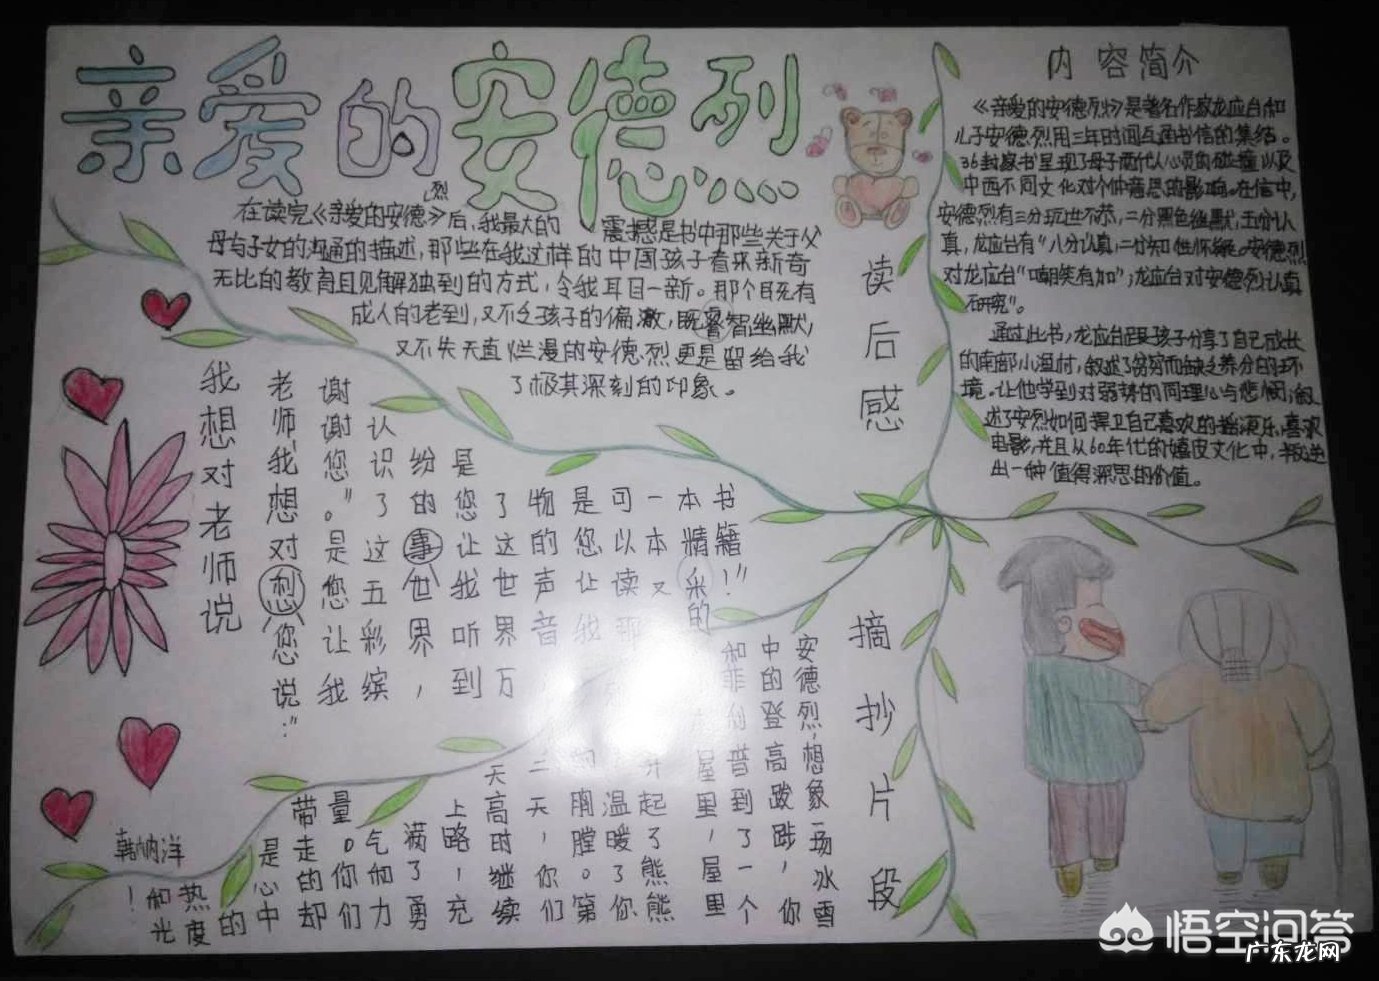 亲爱的安德烈
在读完《亲爱的安德烈》后，我最大的 震撼是书中那些关于父
母与子女的沟通的描述，那些在我这样的中国孩子看来新奇
无比的教育且见解独到的方式，令我耳目一新。那个既有
成人的老到，又不乏孩子的偏激，既睿智幽默，
又不失天真烂漫的安德烈更是留给我
了极其深刻的印象。
读后感
内容简介
《亲爱的安德烈》是著名作家龙应台和
儿子安德烈用三年时间互通书信的集结。
36封家书呈现了母子两代人心灵的碰撞以及
中西不同文化对个体意思的影响。在信中，
安德烈有三分玩世不恭，二分黑色幽默，五分认
真，龙应台有"八分认真，二分知性怀疑。安德烈
对龙应台"嘲笑有加"；龙应台对安德烈"认真
研究"。
通过此书，龙应台跟孩子分享了自己成长
的南部小渔村，叙述了贫穷而缺乏养分的环
境。让他学到对弱势的同理心与悲悯；叙
述了安烈如何捍卫自己喜欢的摇滚乐、喜欢
电影，并且从60年代的嬉皮文化中，
出一种值得深思的价值。
我想对老师说
老师，我想对想您说："
谢谢您。"是您让我
认识了这五彩缤
纷的事世界，
是您让我听到
了这世界万
物的声音
是您让我
可以读那
一本又
本精采的
书籍！"
摘抄片段
安德烈，想象一场冰雪
中的登高跋踄，你
和菲利普到了一个
屋里，屋里
升起了熊熊
温暖了你
的胸膛。第
二天，你们
天高时继续
上路，充
满了勇
气和力
量。你们
带走的却
是心中
的
热度
和光
！
韩纳洋
悟空问答
广东龙网